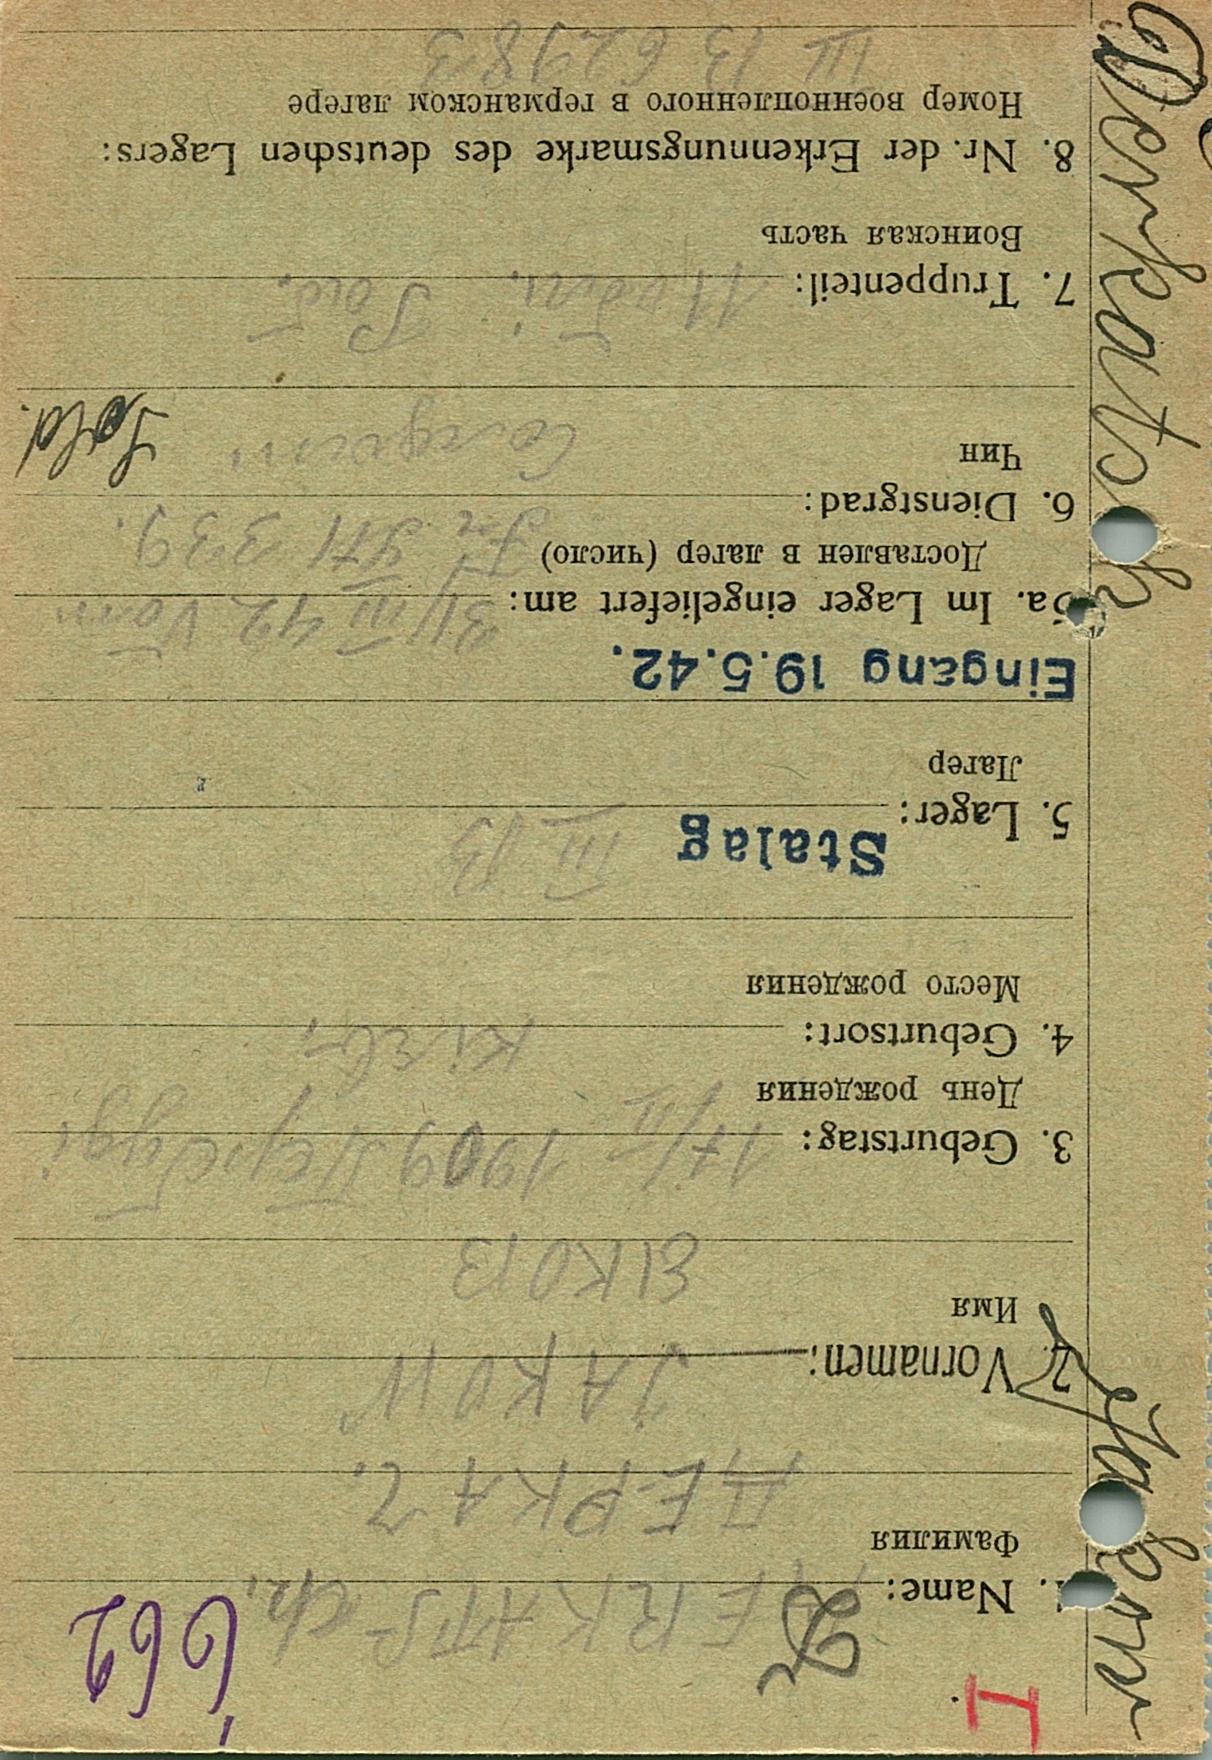 662
1. Name: DERKATSCH.
Фамилия
ДЕРКАЧ.
2. Vornamen: JAKOW
Имя
ЯКОВ
3. Geburtstag: 17/II 1909
День рождения
4. Geburtsort: КіЕВ.
Место рождения
5. Lager: Stalag III B
Лагер
Eingang 19.5.42.
5a. Im Lager eingeliefert am: 31/III 42 Vom
Доставлен в лагер (число)
339.
6. Dienstgrad:
Чин
Sold.
7. Truppenteil:
Воинская часть
8. Nr. der Erkennungsmarke des deutschen Lagers:
Номер военнопленного в германском лагере
III B 62983
Derkatsch
Jakow